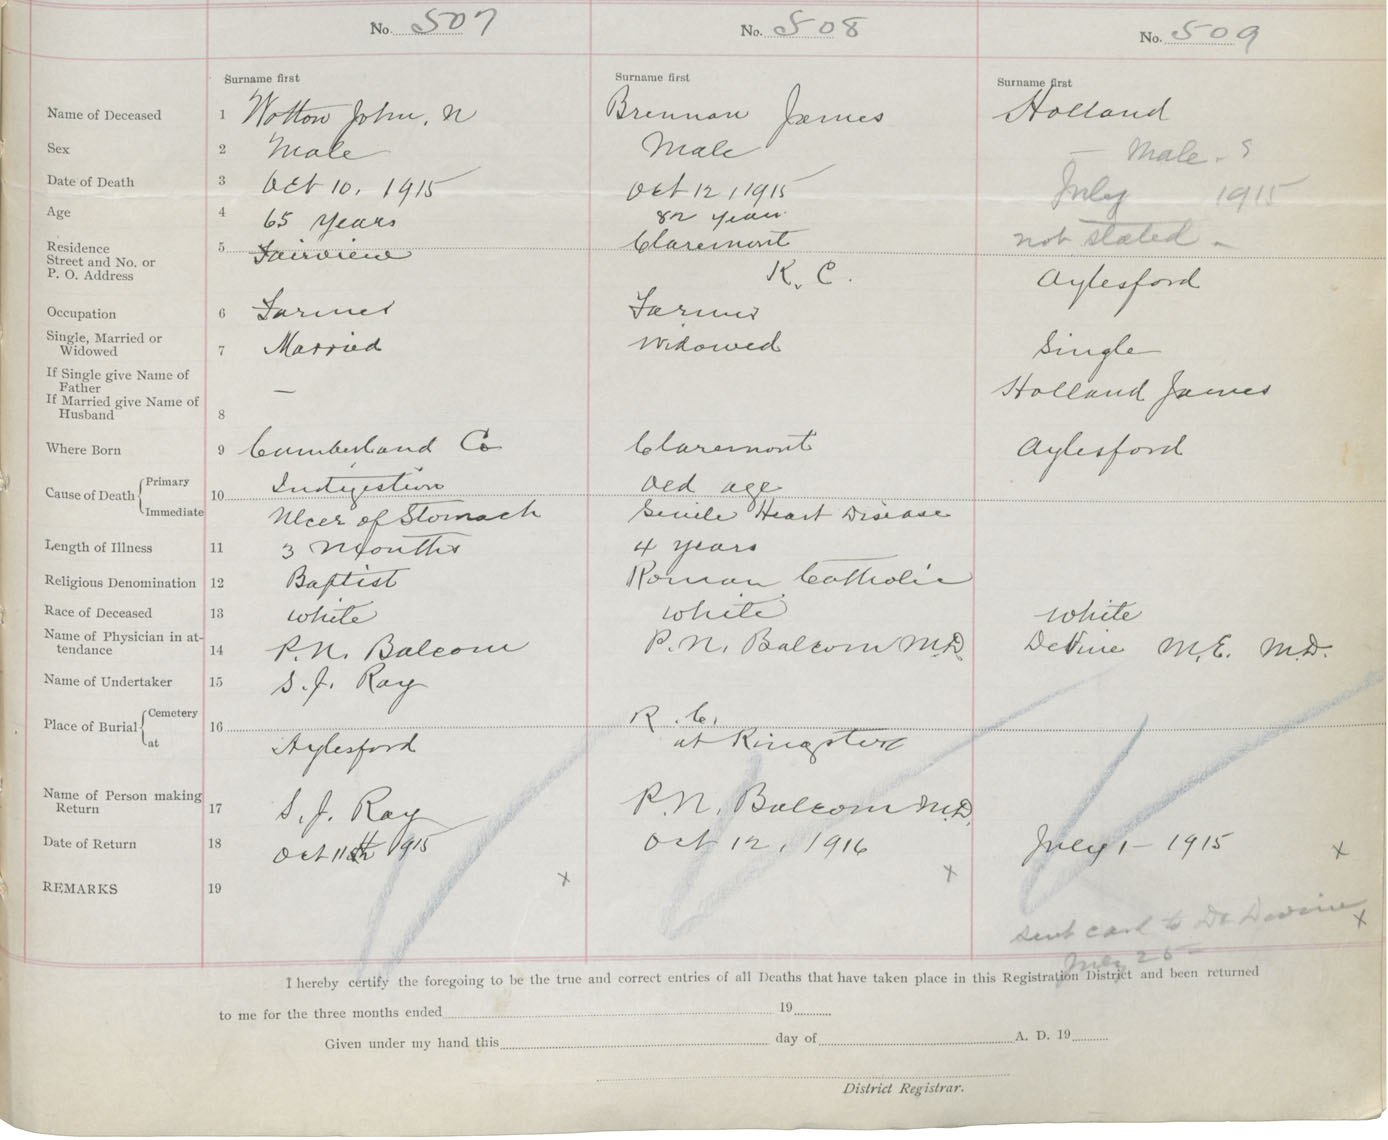 No. 507 No. 508 No. 509
Surname first Surname first Surname first
Name of Deceased 1 Wotton John, N Brennan James Holland
Sex 2 Male Male — Male. ?
Date of Death 3 Oct 10, 1915 Oct 12, 1915 July 1915
Age 4 65 years 82 years not stated -
Residence
Street and No. or
P. O. Address 5 Fairview Claremont
K. C. Aylesford
Occupation 6 Farmer Farmer
Single, Married or
Widowed 7 Married Widowed Single
If Single give Name of
Father
If Married give Name of
Husband 8 — Holland James
Where Born 9 Cumberland Co Claremont Aylesford
Cause of Death Primary 10 Indigestion Old age
Immediate Ulcer of Stomach Senile Heart Disease
Length of Illness 11 3 Months 4 years
Religious Denomination 12 Baptist Roman Catholic
Race of Deceased 13 white white white
Name of Physician in at-
tendance 14 P.N. Balcom P.N. Balcom M.D. DeVine M.E. M.D.
Name of Undertaker 15 S.J. Ray
Place of Burial Cemetery 16 R.C.
at Aylesford at Kingston
Name of Person making
Return 17 S.J. Ray P.N. Balcom M.D.
Date of Return 18 Oct 11th 1915 Oct 12, 1916 July 1 - 1915 x
REMARKS 19 x x
sent card to Dr Devine x
July 25 -
I hereby certify the foregoing to be the true and correct entries of all Deaths that have taken place in this Registration District and been returned
to me for the three months ended 19
Given under my hand this day of A. D. 19
District Registrar.